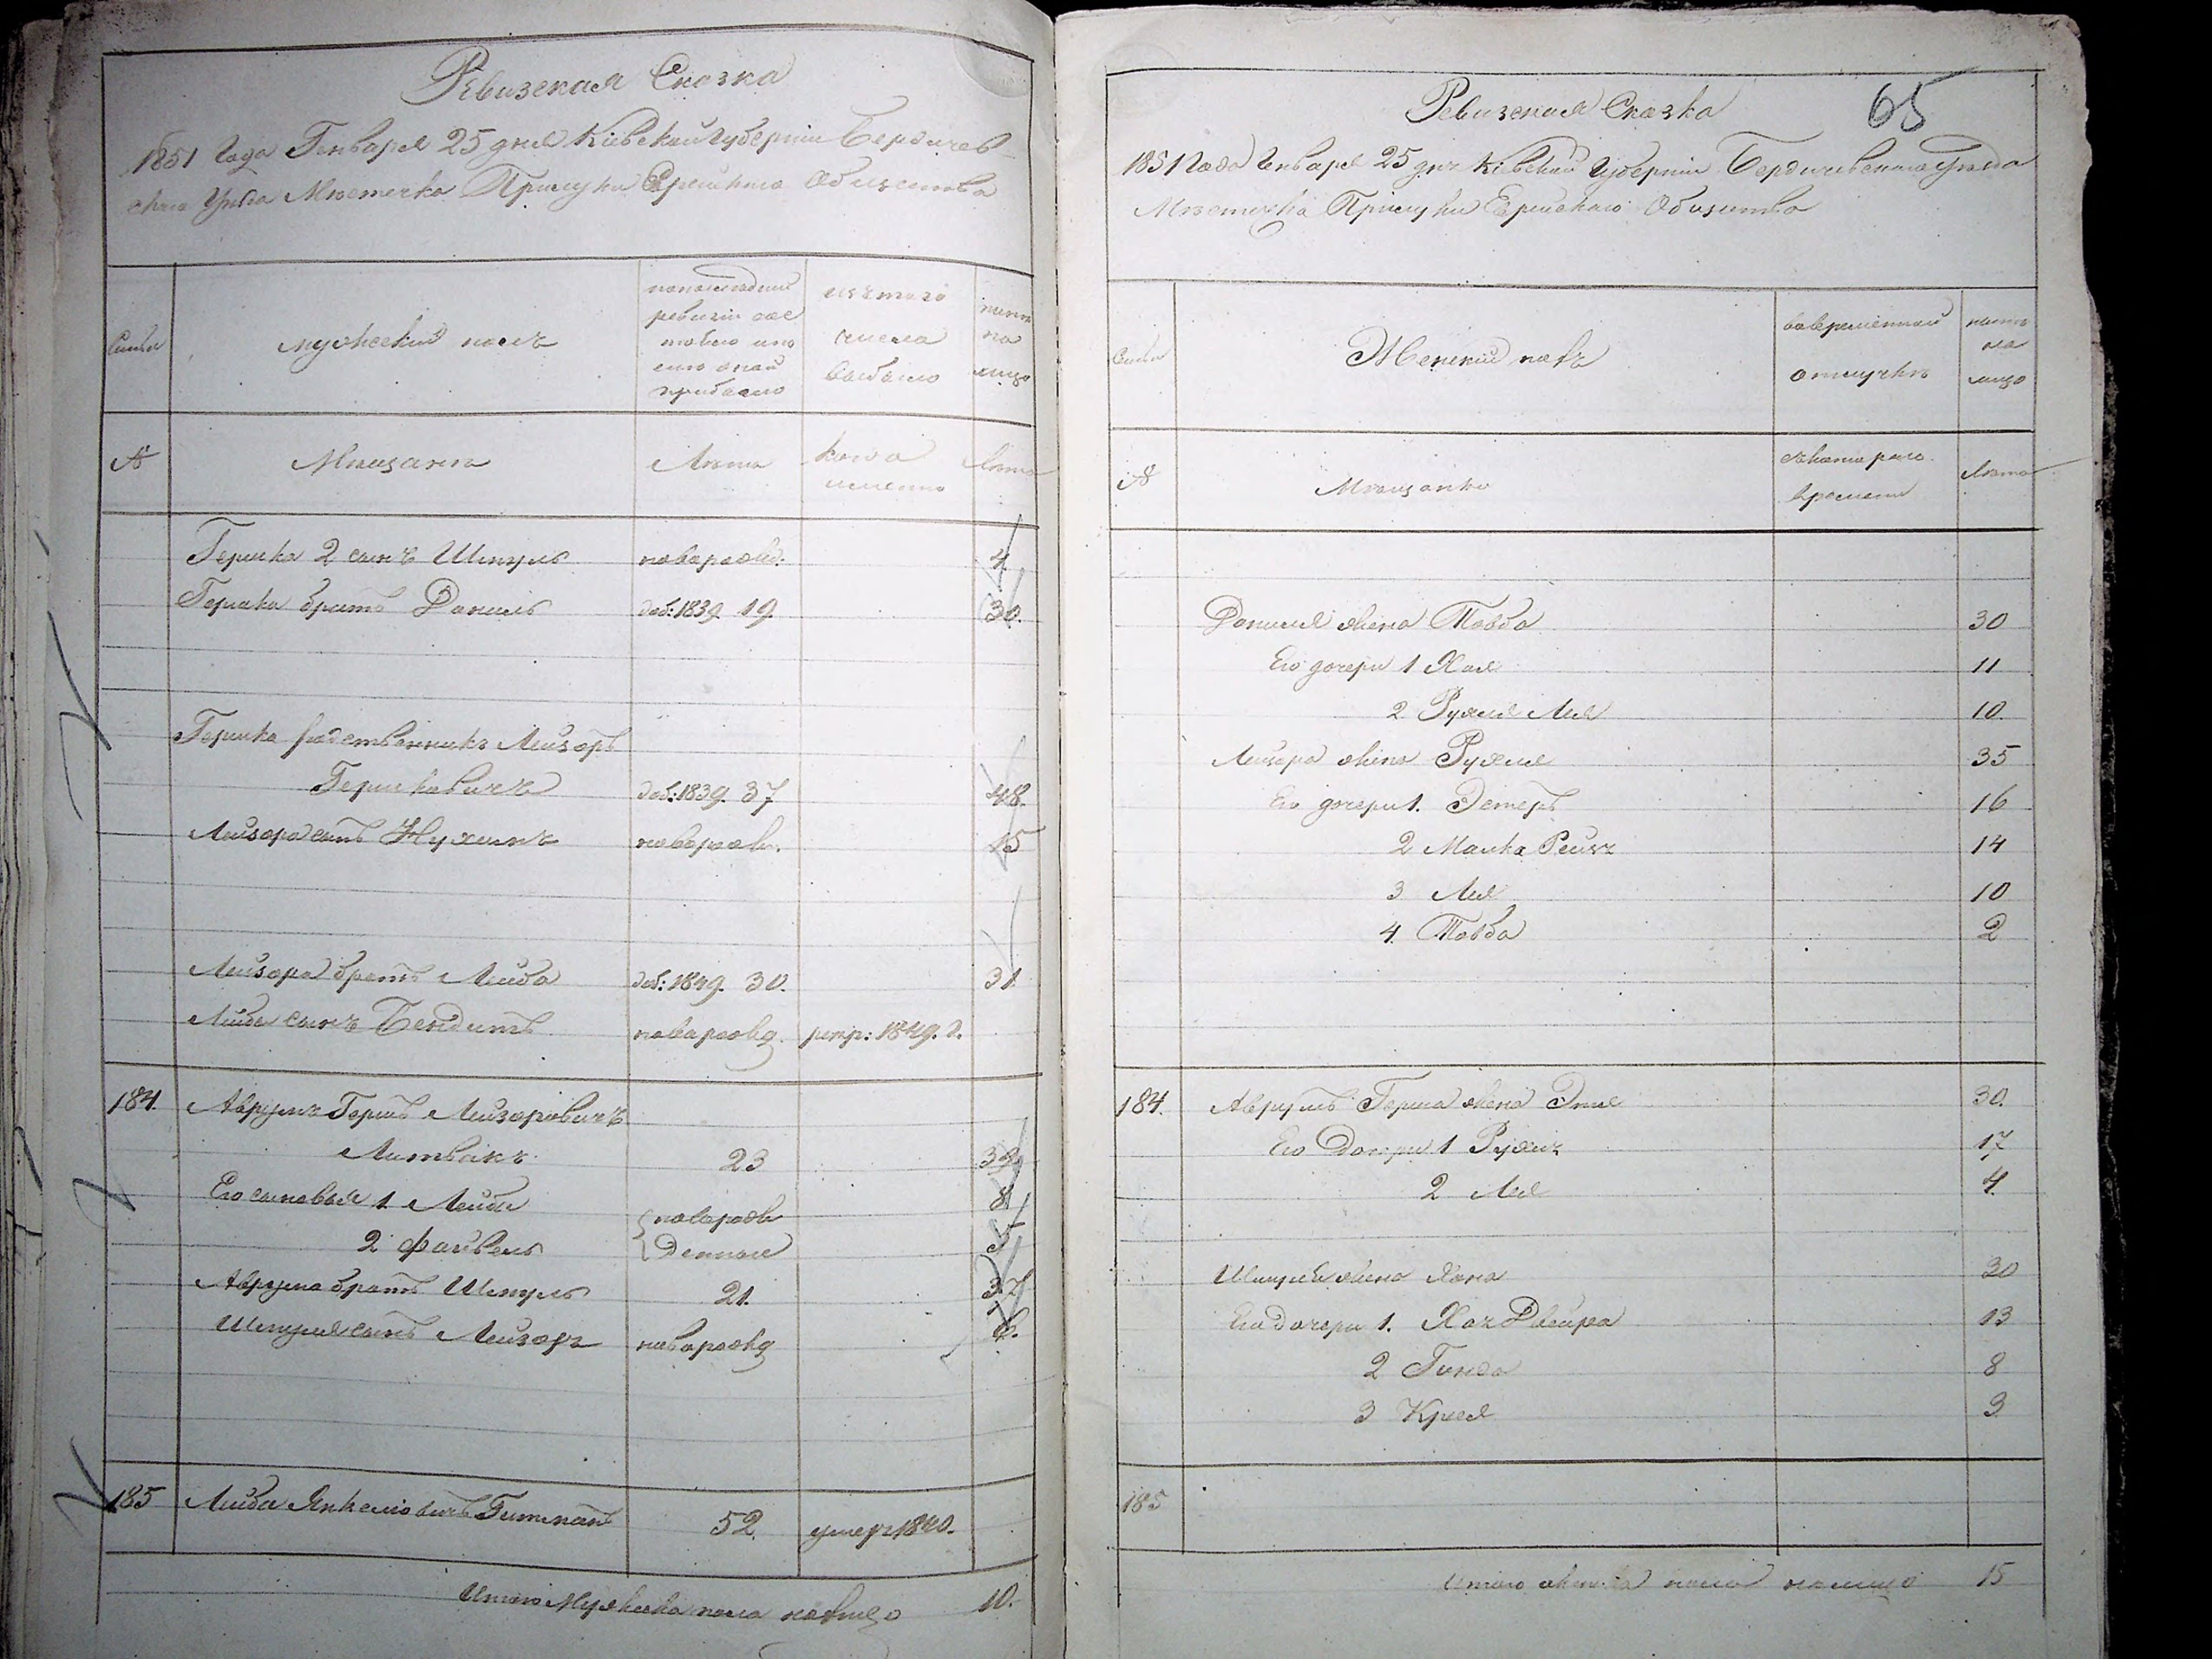 Ревизская Сказка
1851 года Генваря 25 дня Кіевской Губерніи Бердичев-
скаго Уѣзда Мѣстечка Прилуки Еврейскаго Общества
Семьи
мужескій полъ
по последней
ревизіи сос
тояло и по
слѣ оной
прибыло
изъ того
числа
выбыло
нынѣ
на
лицо
№
Мѣщанъ
Лѣта
когда
именно
Лѣта
Гершка 2 сынъ Шмуль новорожд: 4
Гершка братъ Даниль доб: 1839. 19. 30.
Гершка родственникъ Лейзоръ
Гершковичъ доб: 1839. 37 48.
Лейзора сынъ Нухимъ новорожд. 15
Лейзора братъ Лейба доб: 1849. 30. 31
Лейбы сынъ Бендитъ новорожд. 1849. г.
184. Аврумъ Гершъ Лейзоровичъ
Литвакъ 23
Его сыновья 1. Лейба новорожд 8
2 Файвель 5
Аврума братъ Шмуль 21. 32
Шмуля сынъ Лейзоръ новорожд
185 Лейба Янкелювичъ 52. умеръ 1840.
Итого Мужеска пола налицо 10.
65
Ревизская Сказка
1851 Года Генваря 25 дня Кіевской Губерніи Бердичевскаго Уѣзда
Мѣстечка Прилуки Еврейскаго Общества
Семьи
Женскій полъ
во временной
отлучкѣ
нынѣ
на
лицо
№
Мѣщанки
съ котораго
времени
Лѣта
Даниля жена Товба 30
Его дочери 1 Хая 11
2 Рухля Лея 10.
Лейзора жена Рухля 35
Его дочери 1. Эстеръ 16
2 Малка Рейзя 14
3 Лея 10
4. Товба 2
184. Аврумъ Герша жена Эня 30.
Его Дочери 1 Рухля 17
2 Лея 4.
Шмуля жена Хана 30
Его дочери 1. Хая Двейра 13
2 Гинда 8
3 Крея 3
185
Итого женска пола налицо 15